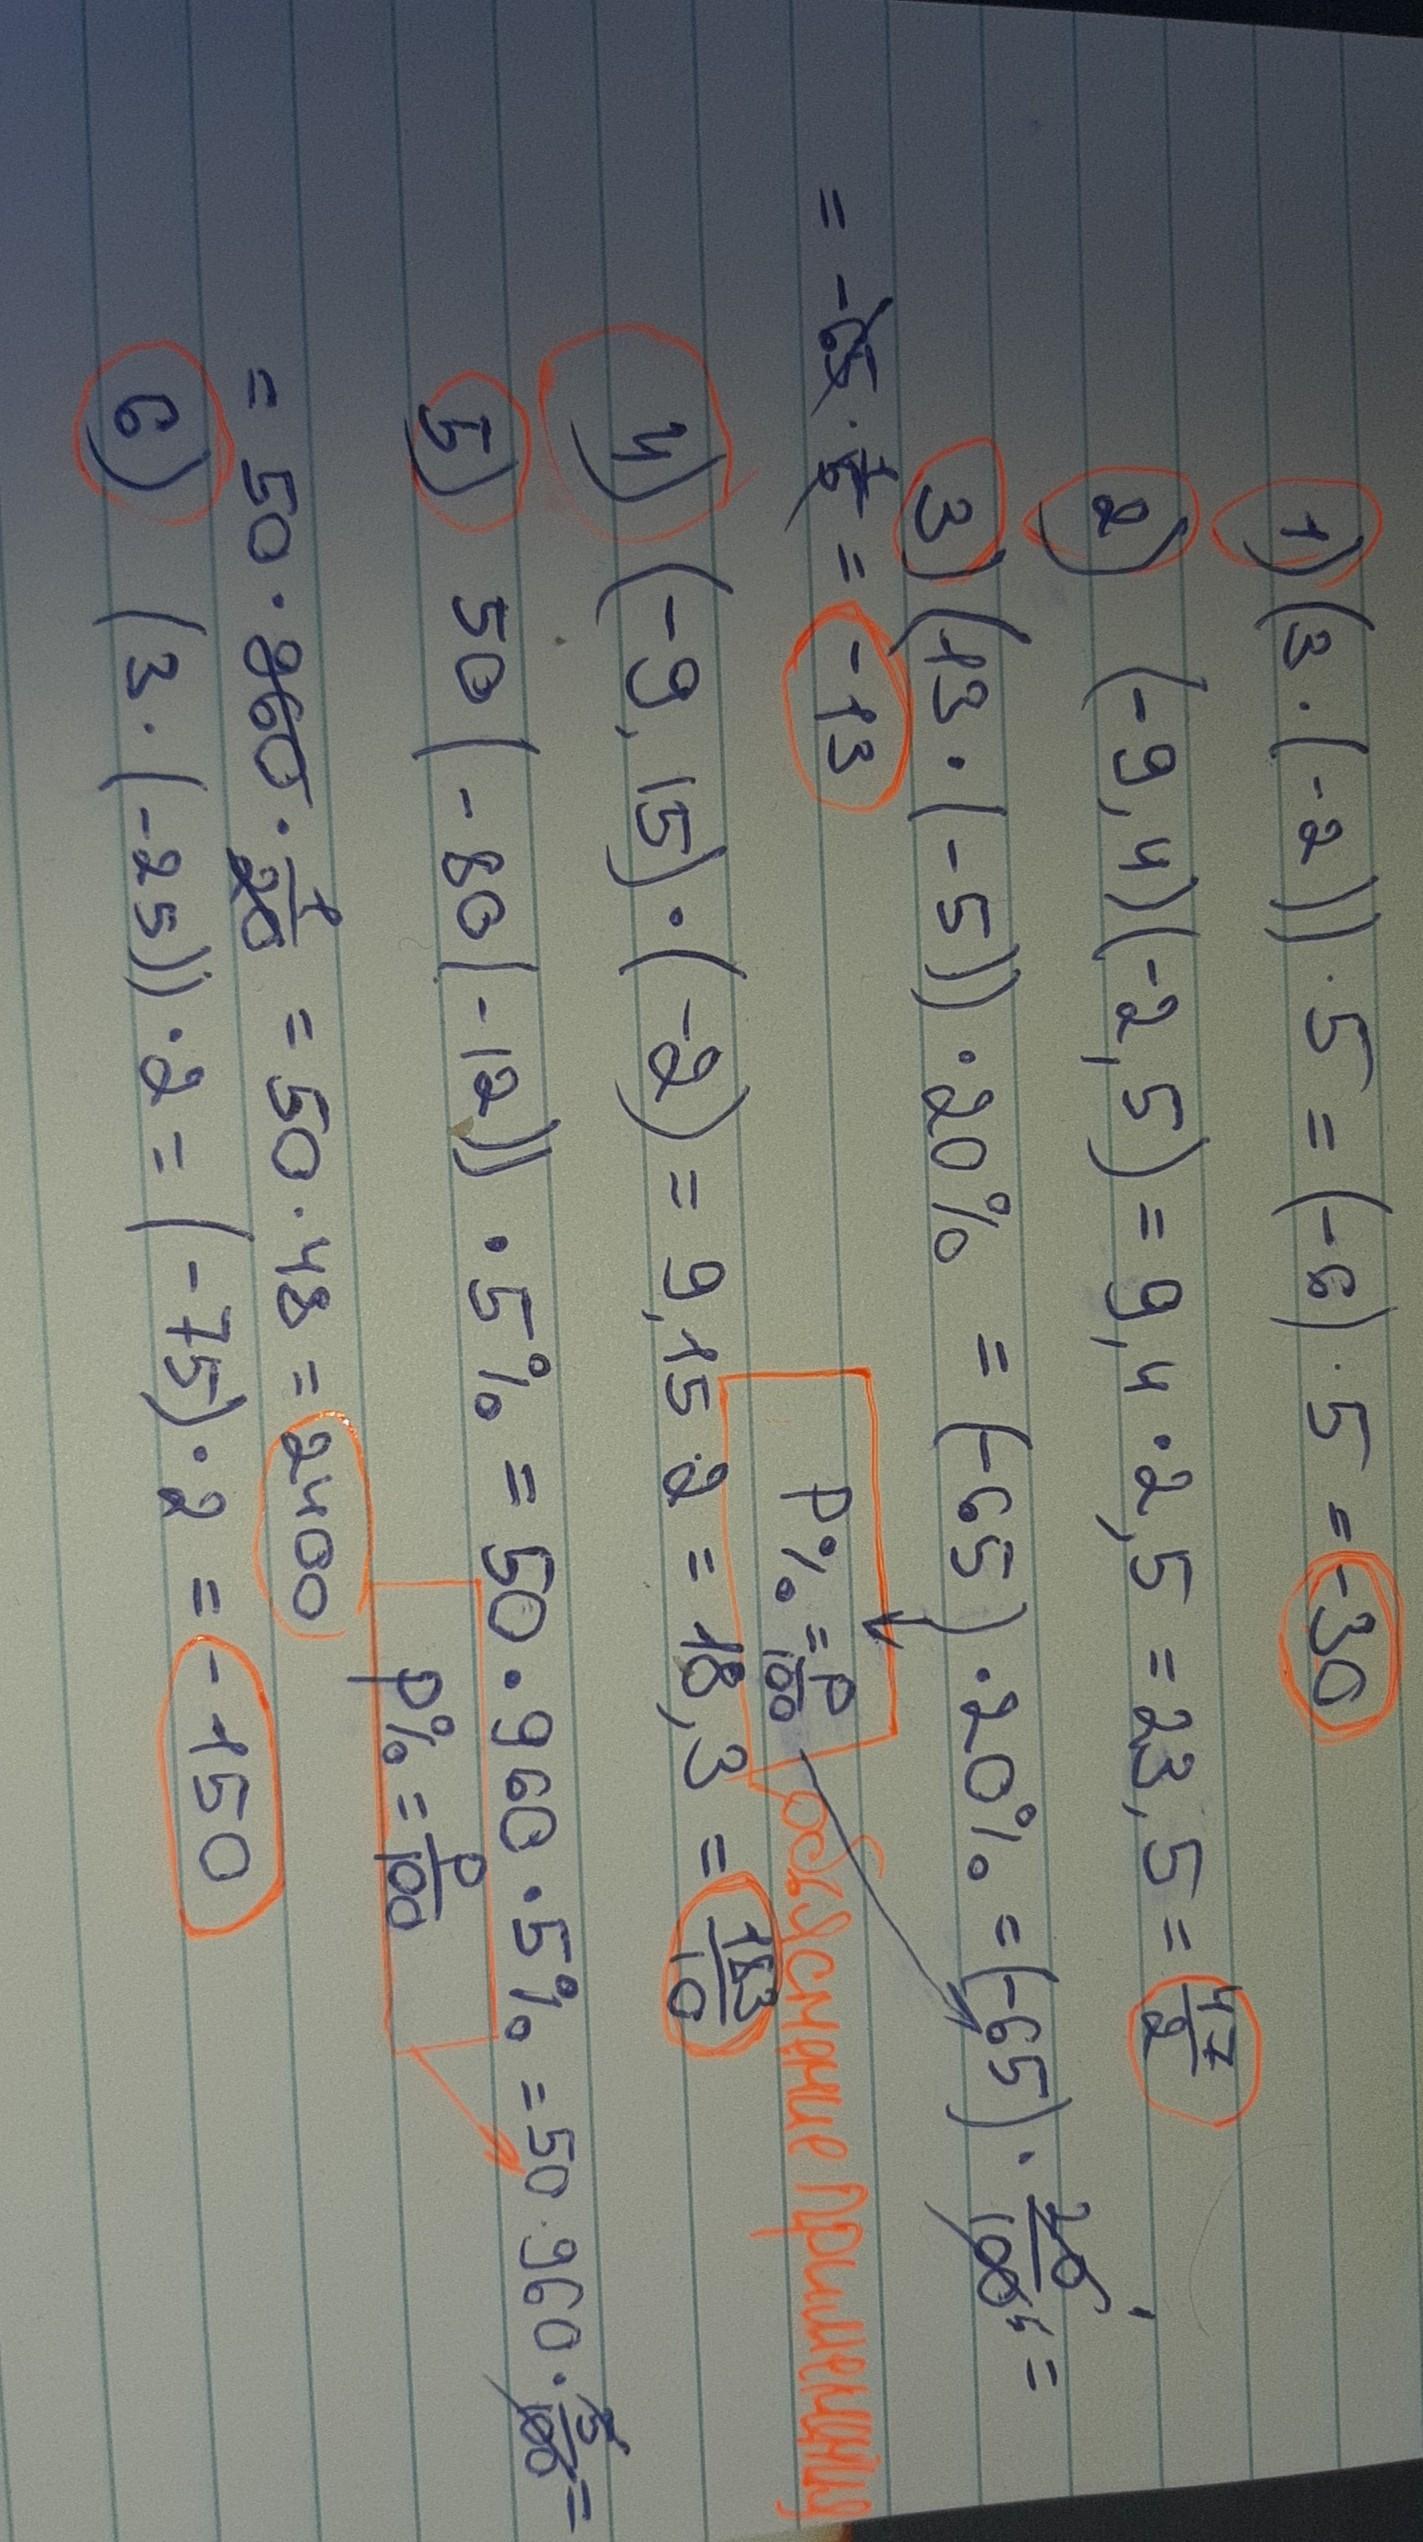 1) (3·(-2))·5 = (-6)·5 = -30
2) (-9,4)(-2,5) = 9,4·2,5 = 23,5 = 47/2
3) (13·(-5))·20% = (-65)·20% = (-65)·20/100 =
p% = p/100
= -65·1/5 = -13
объяснение применения
4) (-9,15)·(-2) = 9,15·2 = 18,3 = 183/10
5) 50(-80(-12))·5% = 50·960·5% = 50·960·5/100 =
p% = p/100
= 50·960·1/20 = 50·48 = 2400
6) (3·(-25))·2 = (-75)·2 = -150